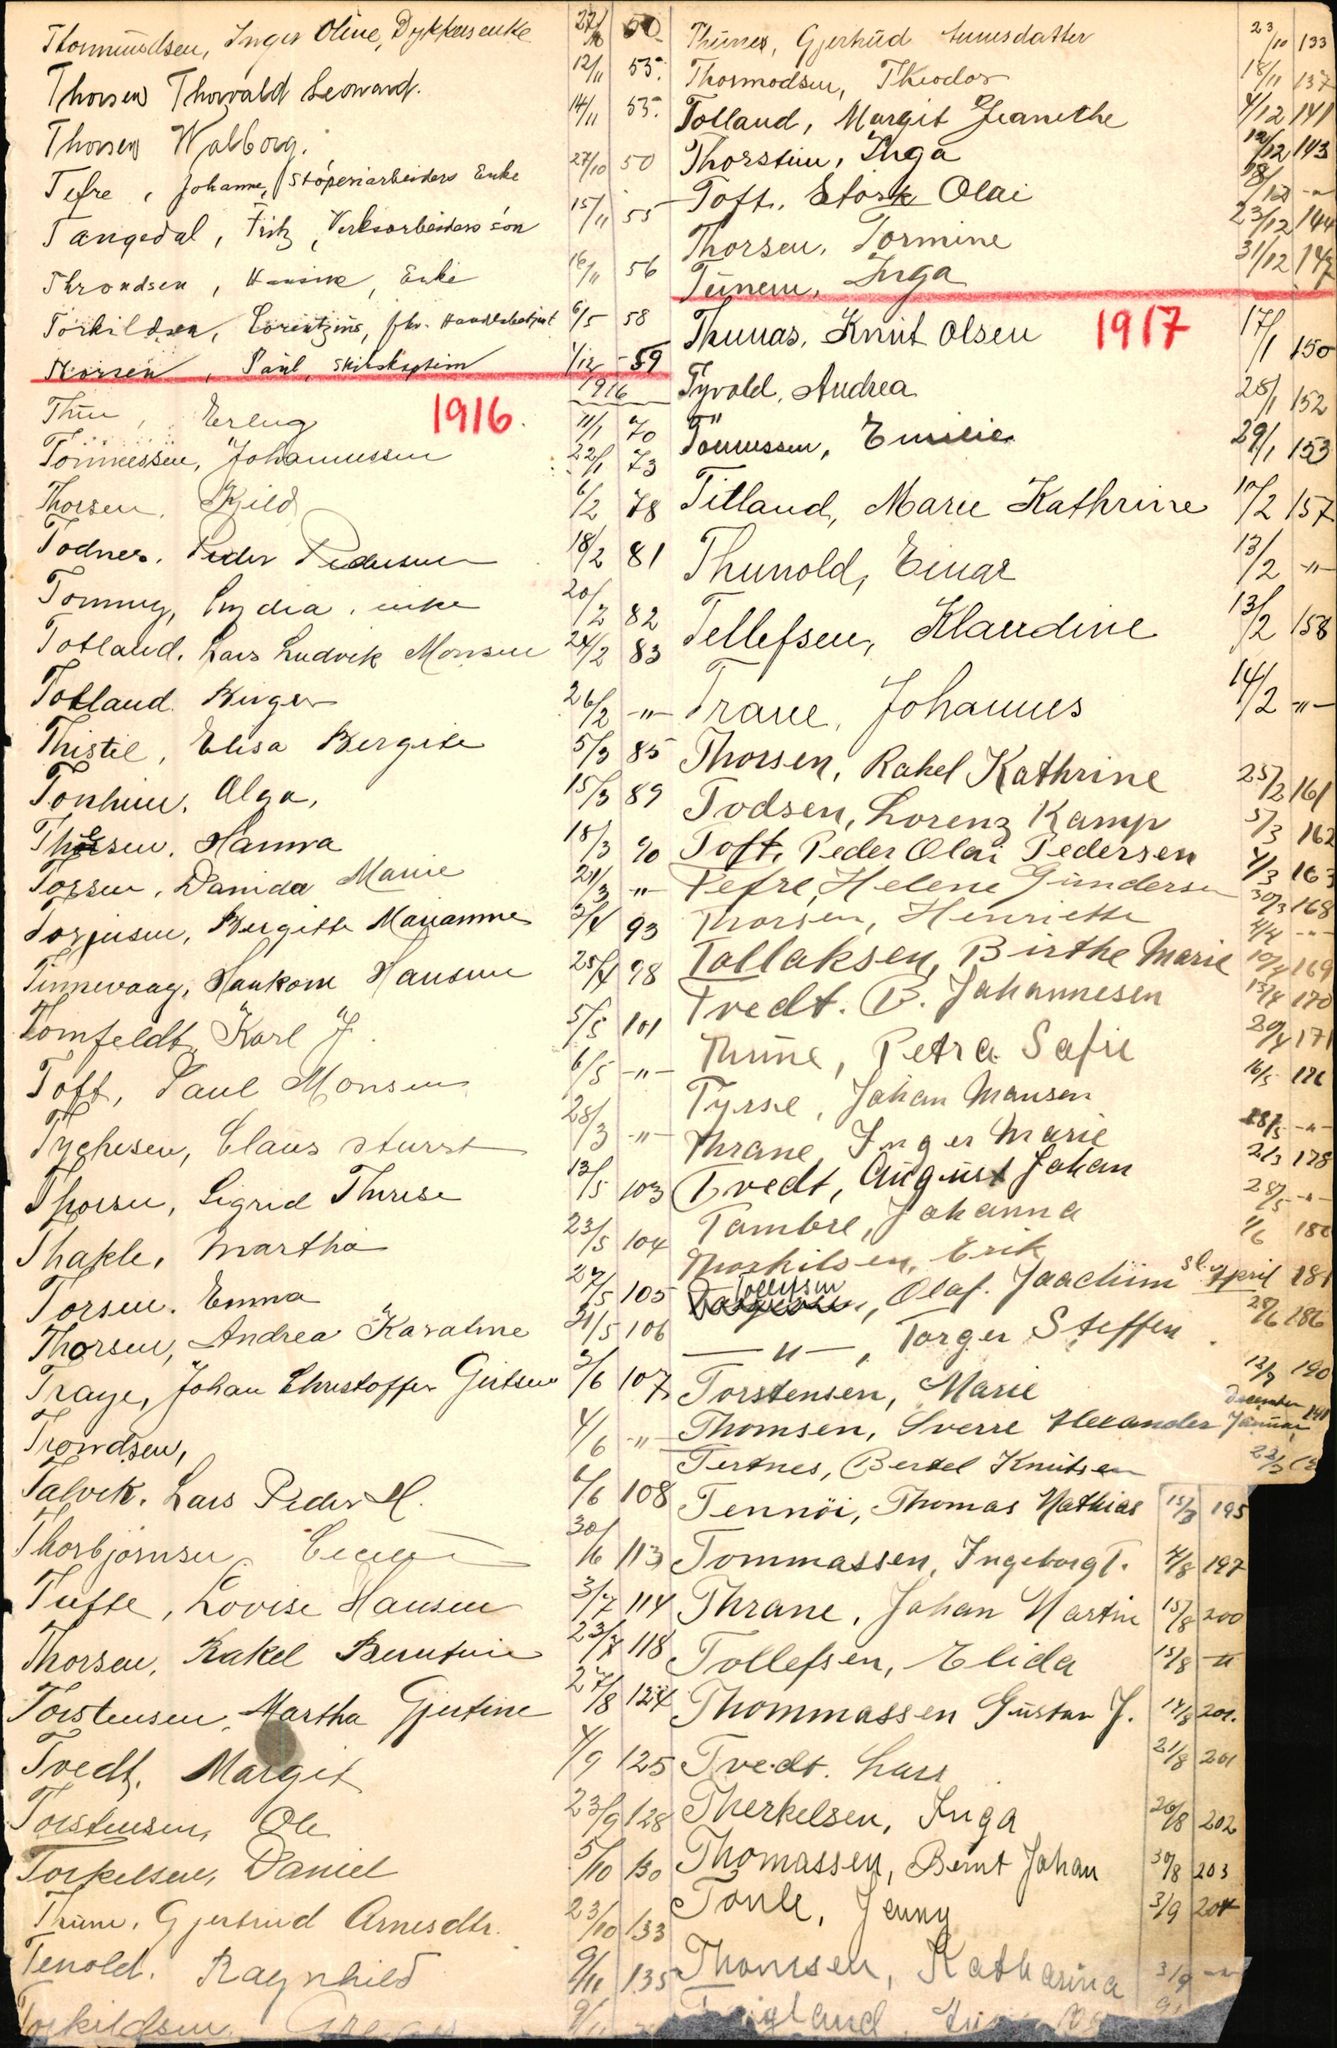 Thormundsen, Inger Oline, Dykkersenke 27/10 50
Thorsen Thorvald Leonard. 12/11 55.
Thorsen Walborg. 14/11 55.
Tefre, Johanne, Stóperiarbeiders Enke 27/10 50
Tangedal, Fritz, Verksarbeiders són 15/11 55
Throndsen, Hansine, Enke 16/11 56
Torkildsen, Lorentzine, fhv. 6/5 58
Thorsen, Paul, Skibskaptein 1/12 59
1916
Thu, Erling 1916. 11/1 70
Tönnessen, Johannessen 22/1 73
Thorsen, Kild 6/2 78
Todnes, Peder Pedersen 18/2 81
Tommy, Lydia, enke 20/2 82
Totland, Lars Ludvik Monsen 24/2 83
Totland Birger 26/2 -"-
Thistel, Elisa Bergite 5/3 85
Olga, 15/3 89
Thorsen, Hanna 18/3 90
Torsen, Danida Marie 21/3 "
Torjusen, Bergitte Marianne 2/4 93
Tinnevaag, Haakon Hansen 25/4 98
Tomfeldt, Karl J. 5/5 101
Toft, Paul Monsen 6/5 -"-
Tychesen, Claus Sturst 28/3 -"-
Thorsen, Sigrid Therese 13/5 103
Thakle, Martha 23/5 104
Torsen, Emma 27/5 105
Thorsen, Andrea Karatine 31/5 106
Traye, Johan Christoffer Giertsen 2/6 107
Trondsen, 4/6 -"-
Talvik, Lars Peder H. 6/6 108
Thorbjørnsen 30/6 113
Tufte, Lovise Hansen 3/7 114
Thorsen, Rakel Berntine 23/7 118
Torstensen, Martha Gjertine 27/8 124
Tvedt, Margit 4/9 125
Torstensen, Ole 23/9 128
Torkelsen, Daniel 5/10 130
Thune, Gjertrud Arnesdtr. 23/10 133
Tenold, Ragnhild 9/11 135
Torkildsen 9/11
Thunes, Gjertrud Arnesdatter 23/10 133
Thormodsen, Theodor 18/11 137
Totland, Margit Jeanethe 4/12 141
Thorstein, Inga 12/12 143
Toft, Stork Olai 18/12 -"-
Thorsen, Tormine 23/12 144
Tunem, Inga 31/12 147
Thunas, Knut Olsen 1917 17/1 150
Tyvold, Andrea 28/1 152
Tönnessen, Emilie 29/1 153
Titland, Marie Kathrine 10/2 157
Thunold, Einar 13/2 -"-
Tellefsen, Klaudine 13/2 158
Trane, Johannes 14/2 -"-
Thorsen, Rakel Kathrine 25/2 161
Todsen, Lorenz Kamp 5/3 162
Toft, Peder Olai Pedersen 4/3 163
Tefre, Helene Gundersen 30/3 168
Thorsen, Henriette 4/4 -"-
Tollaksen, Birthe Marie 10/4 169
Tvedt. B. Johannesen 13/4 170
Thune, Petra Sofie 20/4 171
Tyrse, Johan Mansen 16/5 176
Thrane, Inger Marie 18/5 -"-
Tvedt, August Johan 2/3 178
Tambre, Johanna 28/5 -"-
Thorkilsen, Erik 1/6 180
Tollefsen, Olaf. Joachim sl. April 181
— " —, Torger Steffen. 28/6 186
Torstensen, Marie 12/7 190
Thomsen, Sverre Alexander December Januar 191
Tertnes, Bertel Knutsen 22/3
Tennöi, Thomas Mathias 15/3 195
Tommassen, Ingeborg T. 4/8 197
Thrane, Johan Martin 15/8 200
Tollefsen, Elida 15/8 -"
Thommassen Gustav J. 14/8 201.
Tvedt. Lars 21/8 201
Therkelsen, Inga 26/8 202
Thomassen, Bernt Johan 30/8 203
Tonle, Jenny 3/9 204
Thomsen, Katharina 3/9 -"-